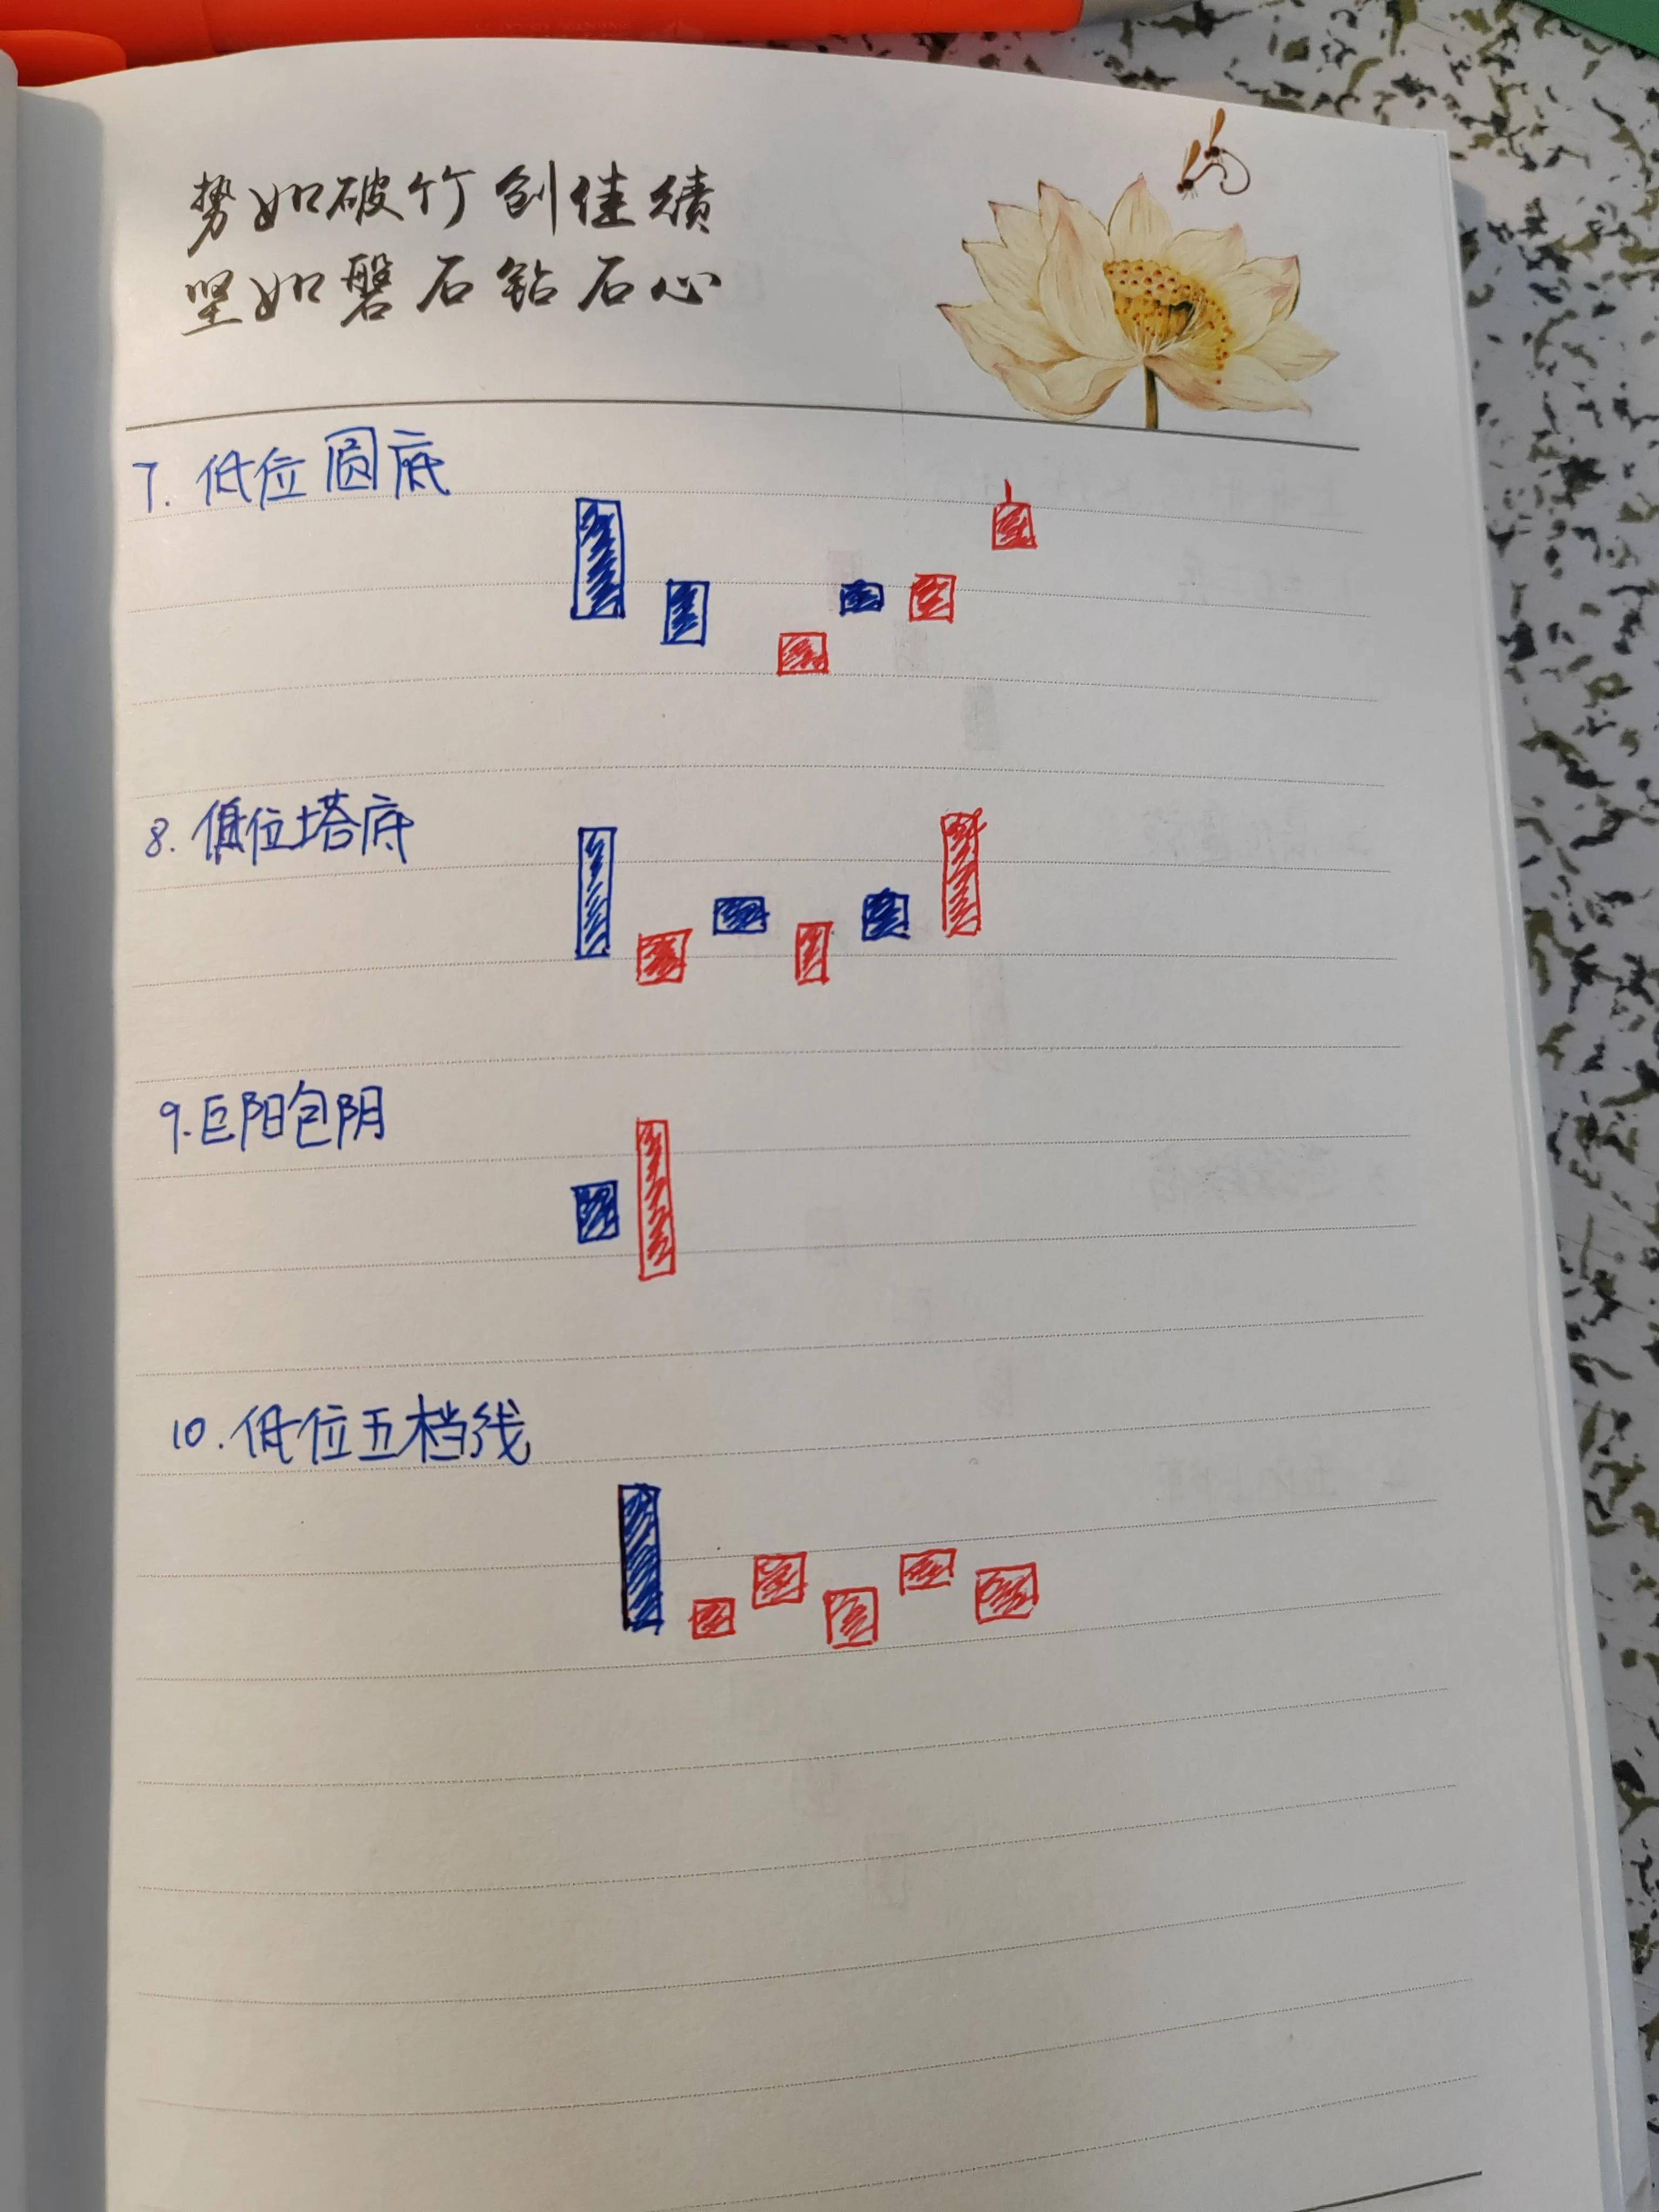 势如破竹创佳绩
坚如磐石钻石心
7. 低位圆底
8. 低位塔底
9. 巨阳包阴
10. 低位五档线